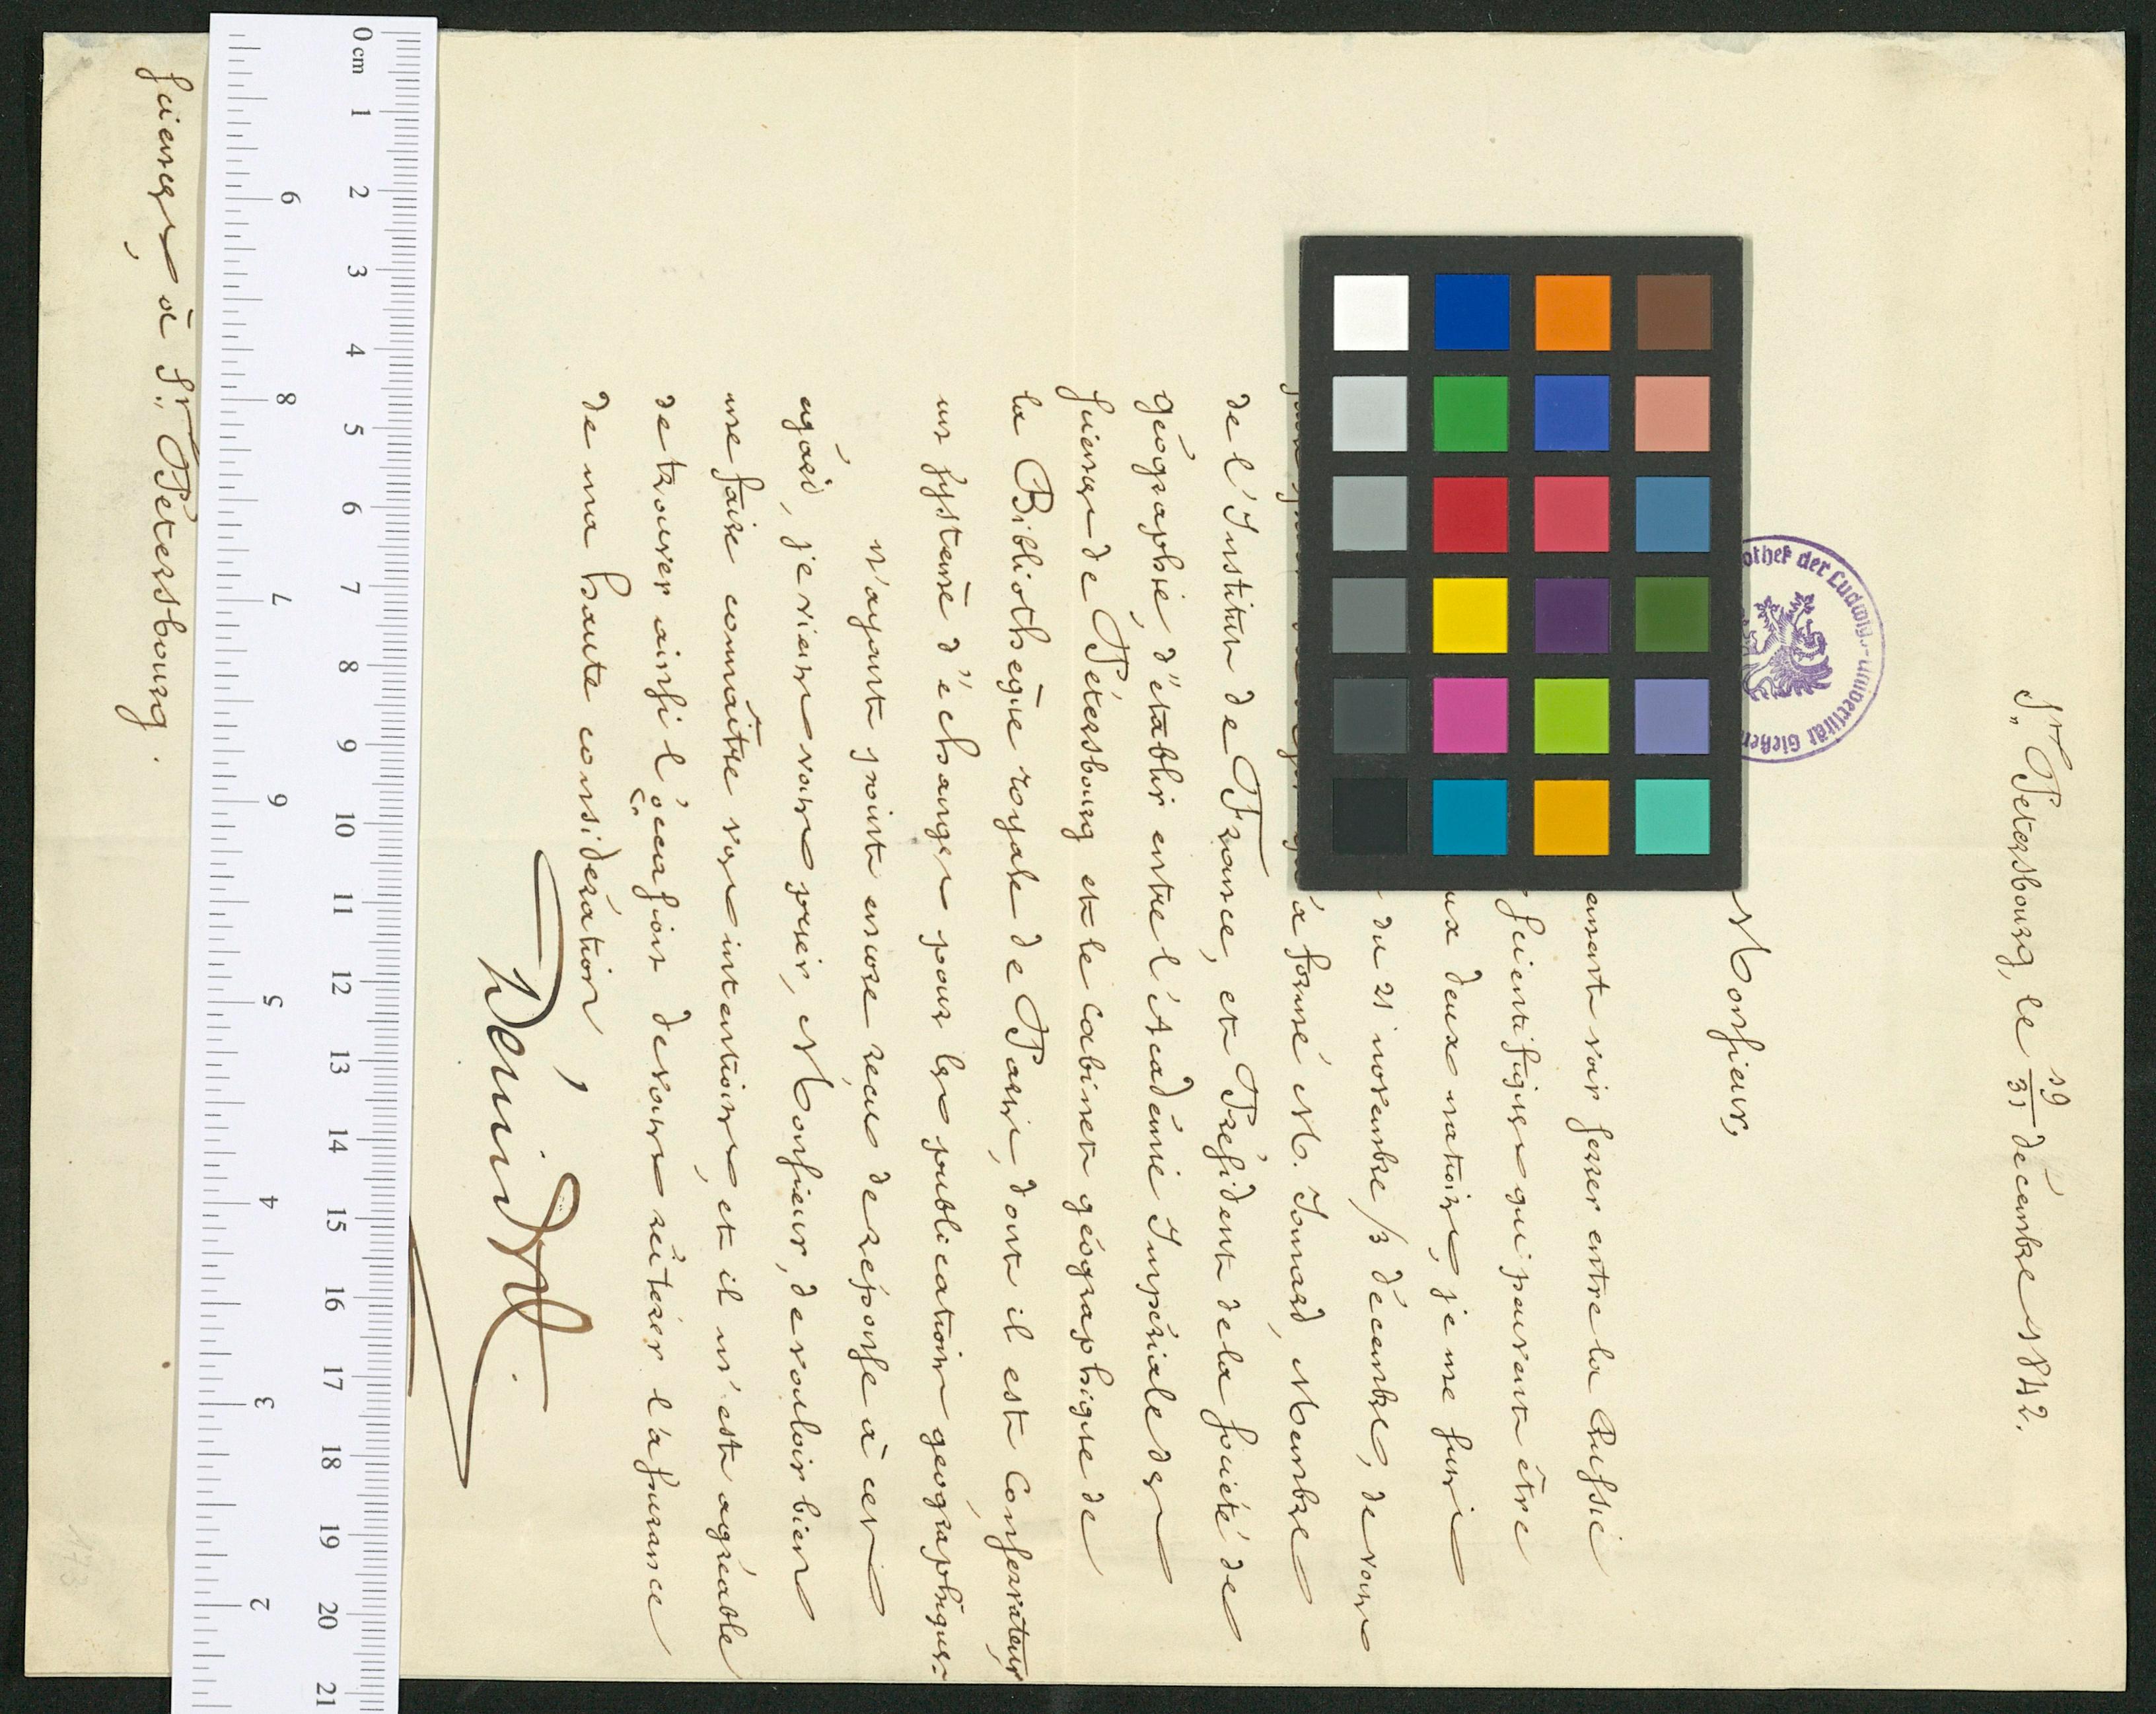 St. Pétersbourg, le 19/31 décembre 1842.
othek der Ludwigs-Universität Gießen
Monsieur,
voir serrer entre la Russie
scientifiques qui peuvent être
deux nations, je me suis
du 21 novembre /3 décembre, de vous
a formé M. Jomard, Membre
de l'Institut de France, et Président de la société de
géographie, d'établir entre l'Académie Impériale des
sciences de St. Pétersbourg et le Cabinet géographique de
la Bibliothèque royale de Paris, dont il est Conservateur,
un système d'échanges pour les publications géographiques.
N'ayant point encore reçu de réponse à cet
égard, je viens vous prier, Monsieur, de vouloir bien
me faire connaître vos intentions, et il m'est agréable
de trouver ainsi l'occasion de vous réitérer l'assurance
de ma haute considération
Démidoff.
sciences, à St. Pétersbourg.
0 cm 1 2 3 4 5 6 7 8 9 10 11 12 13 14 15 16 17 18 19 20 21
9 8 7 6 5 4 3 2
173